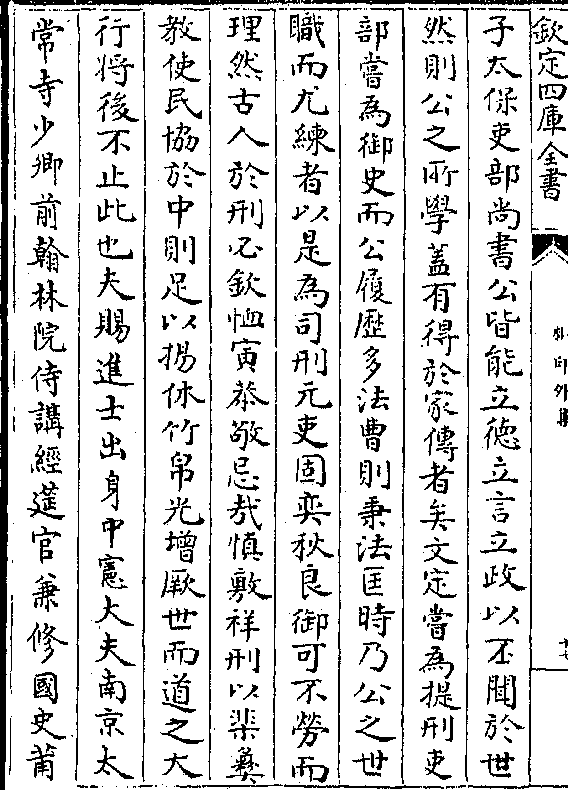 欽定四庫全書
子太保吏部尚書公皆能立德立言立政以丕聞於世
然則公之所學蓋有得於家傳者矣文定嘗為提刑吏
部嘗為御史而公履歷多法曹則秉法匡時乃公之世
職而尤練者以是為司刑元吏固奕秋良御可不勞而
理然古人於刑必欽恤寅恭敬忌哉慎敷祥刑以棐彝
教使民協於中則足以揚休竹帛光增厥世而道之大
行將後不止此也夫賜進士出身中憲大夫南京太
常寺少卿前翰林院侍講經筵官兼修國史莆